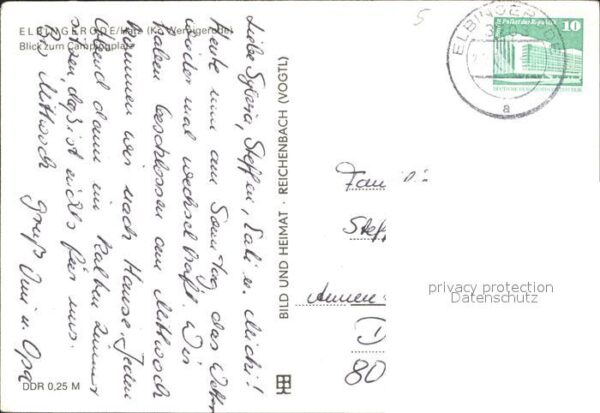 ELBINGERODE/Harz (Kr. Wernigerode)
Blick zum Campingplatz
Liebe Sylvia, Steffen, Kati u. Michi!
Heute nun am Sonntag das Wetter
wieder mal wechselhaft. Wir
haben beschlossen am Mittwoch
kommen wir nach Hause. Jeden
Abend dann im kalten Zimmer
sitzen, daß ist nichts für uns.
Bis Mittwoch Gruß Omi u. Opa
DDR 0,25 M
BILD UND HEIMAT · REICHENBACH (VOGTL)
5
ELBINGERODE
a
Palast der Republik
10
Fam
Steff
80
privacy protection
Datenschutz